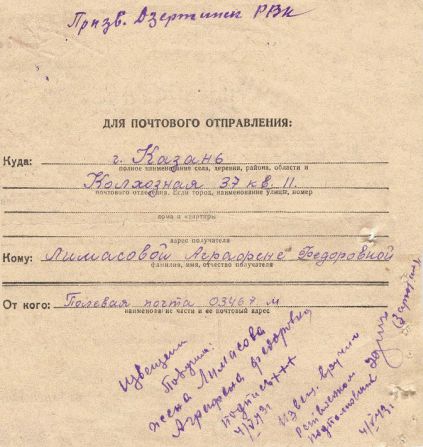 Призв. Дзержинск РВК
ДЛЯ ПОЧТОВОГО ОТПРАВЛЕНИЯ:
Куда: г. Казань
полное наименование села, деревни, района, области и
Колхозная 37 кв. 11.
почтового отделения. Если город, наименование улицы, номер
дома и квартиры
адрес получателя
Кому: Лимасовой Аграфене Федоровной
фамилия, имя, отчество получателя
От кого: Полевая почта 03467 м
наименование части и ее почтовый адрес
Извещени
Получил:
жена Лимасова
Аграфена Федоровна
подпись +++
Извещ. вручил